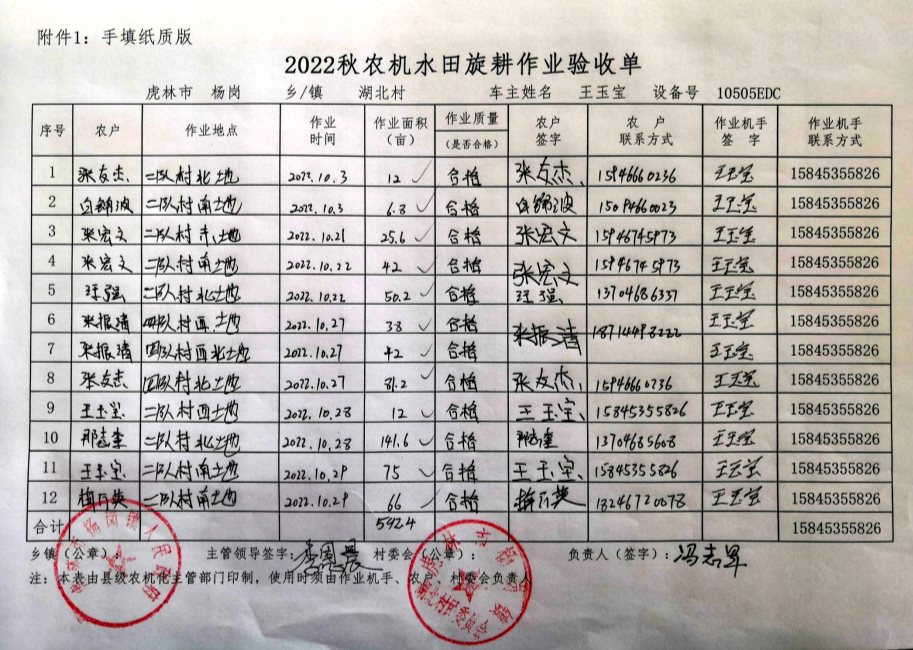 附件1：手填纸质版
2022秋农机水田旋耕作业验收单
虎林市 杨岗 乡/镇 湖北村 车主姓名 王玉宝 设备号 10505EDC
序号 农户 作业地点 作业时间 作业面积（亩） 作业质量（是否合格） 农户签字 农户联系方式 作业机手签字 作业机手联系方式
1 张友杰 二队村北地 2022.10.3 12 ✓ 合格 张友杰 15946660236 王玉宝 15845355826
2 白锦波 二队村南地 2022.10.3 6.8 ✓ 合格 白锦波 15094660023 王玉宝 15845355826
3 张宏文 二队村 土地 2022.10.21 25.6 ✓ 合格 张宏文 15946745973 王玉宝 15845355826
4 张宏文 二队村南地 2022.10.22 42 ✓ 合格 张宏文 15946745973 王玉宝 15845355826
5 汪强 二队村北地 2022.10.22 50.2 ✓ 合格 汪强 13704686337 王玉宝 15845355826
6 张振清 四队村西土地 2022.10.27 38 ✓ 合格 张振清 18714498222 王玉宝 15845355826
7 张振清 四队村西北地 2022.10.27 42 ✓ 合格 王玉宝 15845355826
8 张友杰 四队村北地 2022.10.27 31.2 ✓ 合格 张友杰 15946660236 王玉宝 15845355826
9 王玉宝 二队村西地 2022.10.28 12 ✓ 合格 王玉宝 15845355826 王玉宝 15845355826
10 那志奎 二队村北地 2022.10.28 141.6 ✓ 合格 那志奎 13704685608 王玉宝 15845355826
11 王玉宝 二队村南地 2022.10.29 75 ✓ 合格 王玉宝 15845355826 王玉宝 15845355826
12 二队村南地 2022.10.29 66 ✓ 合格 13246720078 王玉宝 15845355826
合计 542.4 15845355826
乡镇（公章）： 主管领导签字： 村委会（公章）： 负责人（签字）：冯志军
注：本表由县级农机化主管部门印制，使用时须由作业机手、农户、村委会负责人